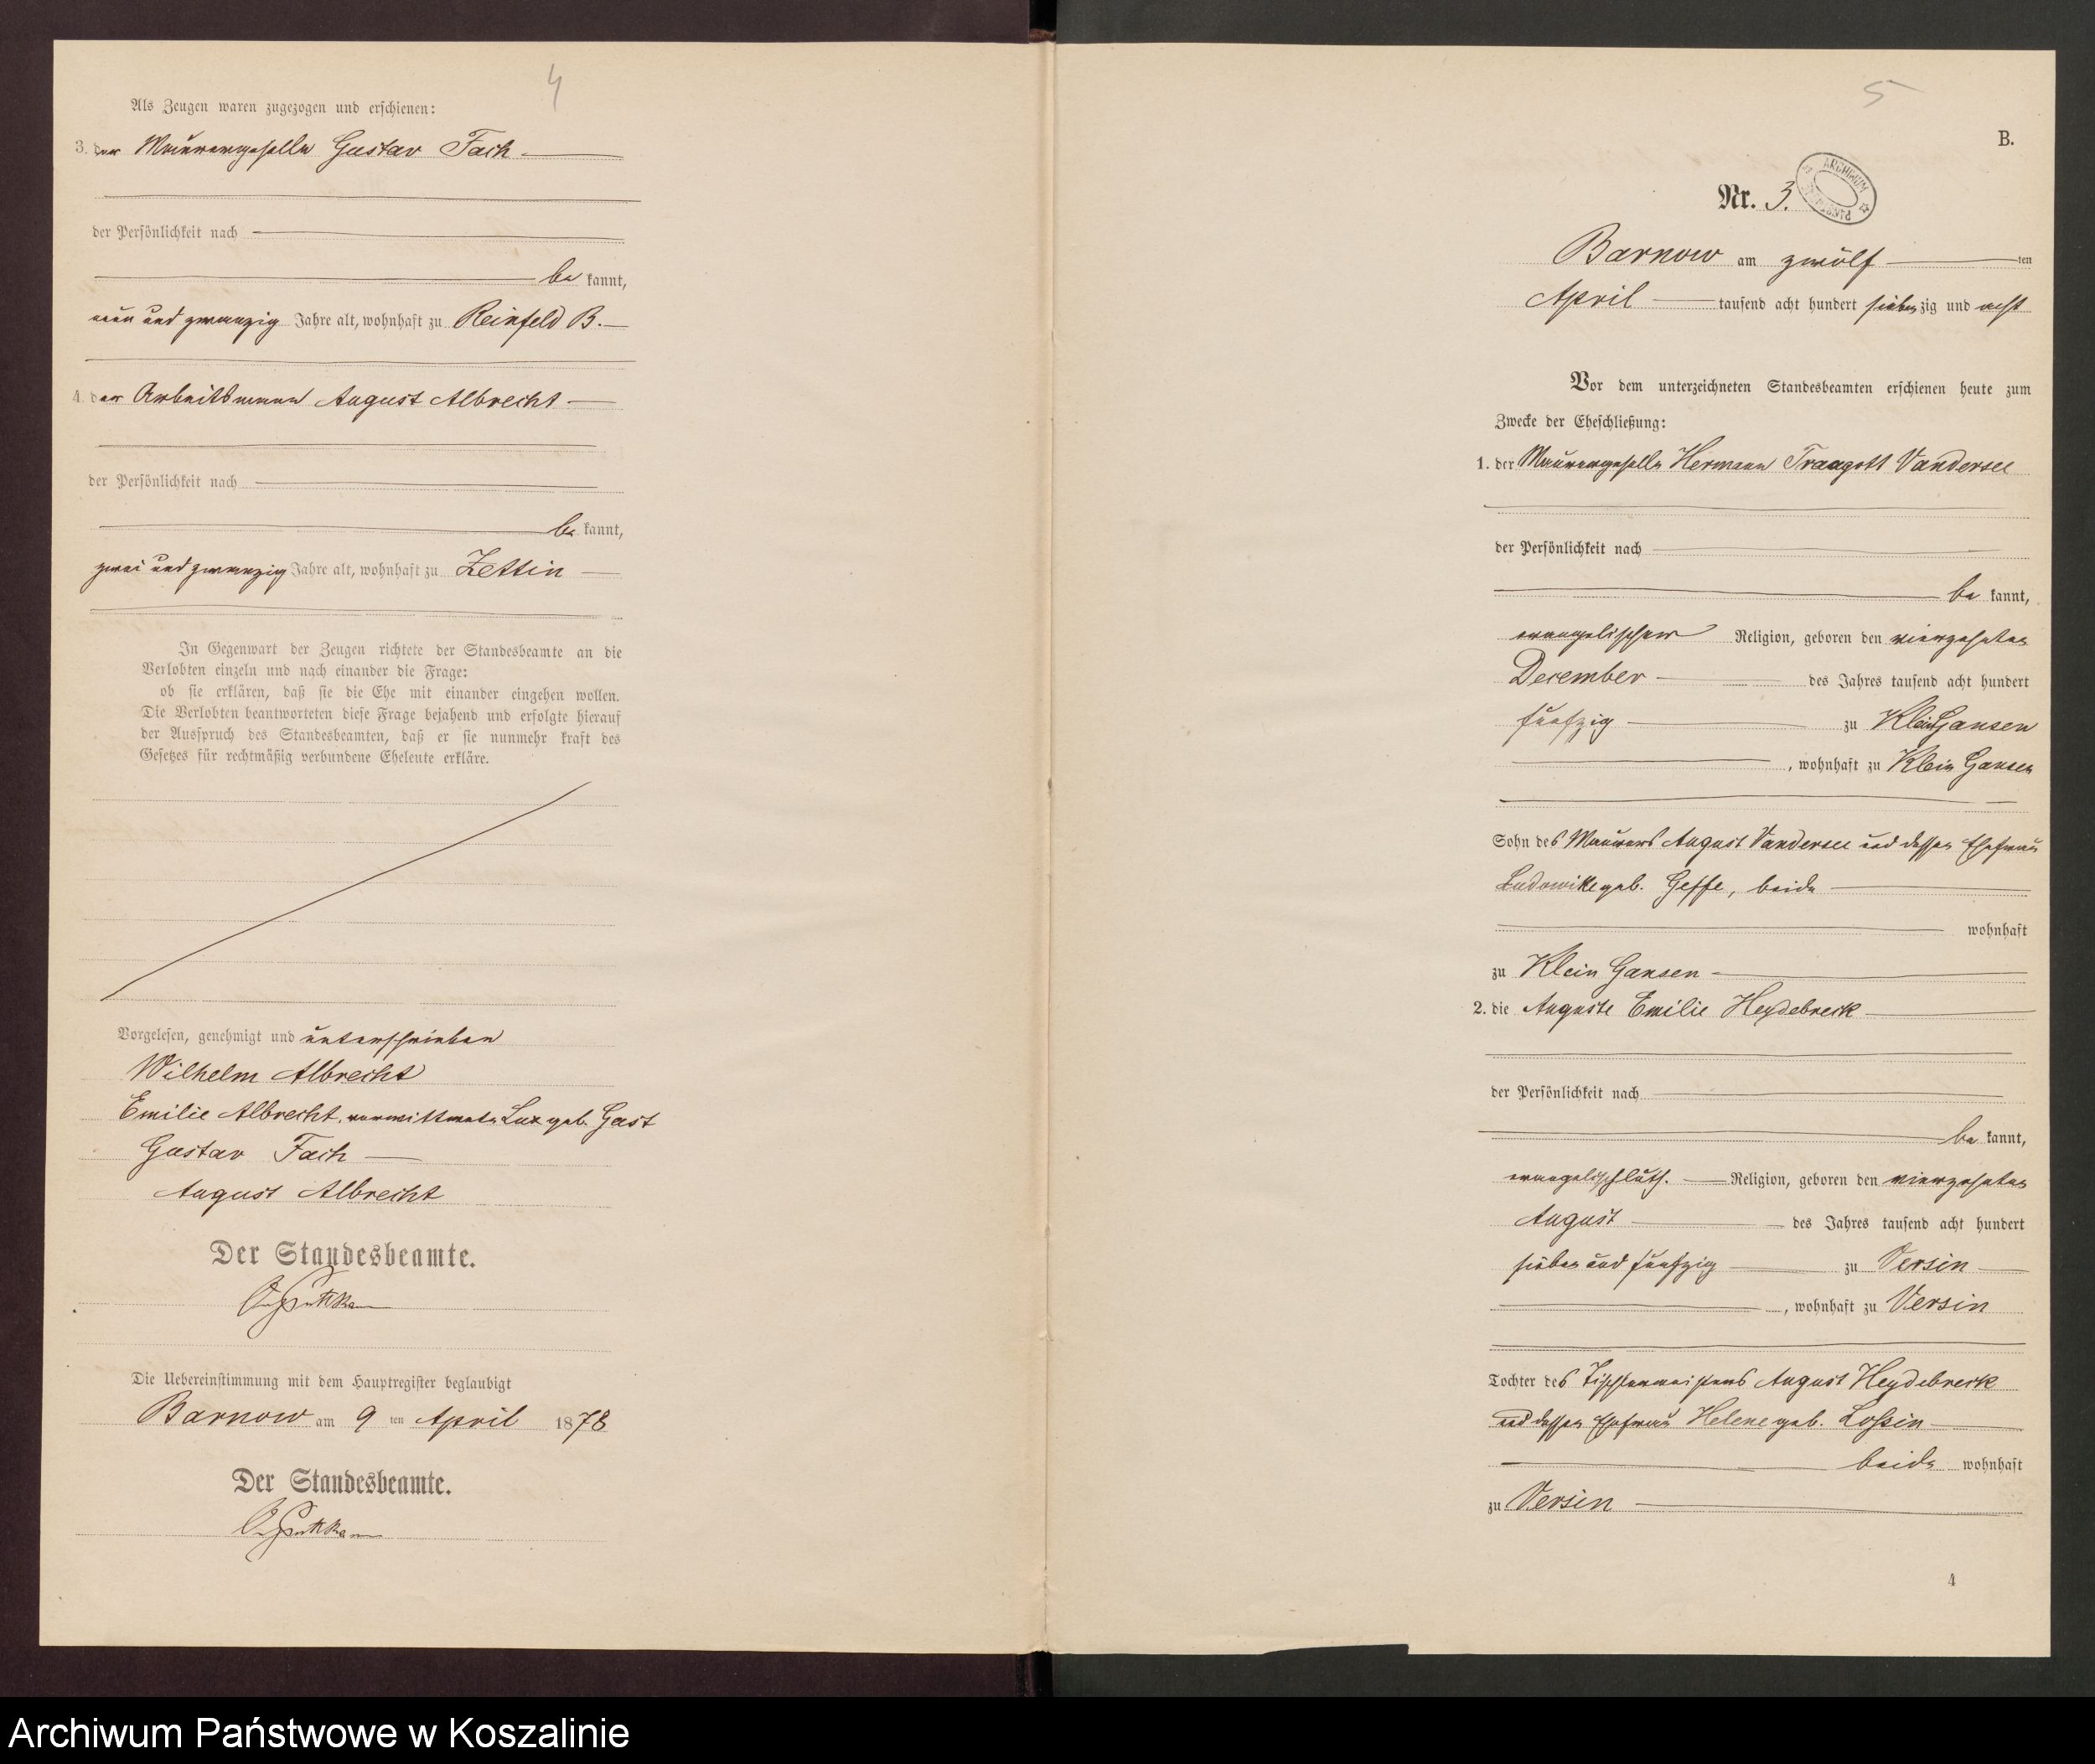 4
Als Zeugen waren zugezogen und erschienen:
3. der Maurergeselle Gustav Fach
der Persönlichkeit nach
be kannt,
neun und zwanzig Jahre alt, wohnhaft zu Reinfeld B.
4. der Arbeitsmann August Albrecht
der Persönlichkeit nach
be kannt,
zwei und zwanzig Jahre alt, wohnhaft zu Zettin
In Gegenwart der Zeugen richtete der Standesbeamte an die
Verlobten einzeln und nach einander die Frage:
ob sie erklären, daß sie die Ehe mit einander eingehen wollen.
Die Verlobten beantworteten diese Frage bejahend und erfolgte hierauf
der Ausspruch des Standesbeamten, daß er sie nunmehr kraft des
Gesetzes für rechtmäßig verbundene Eheleute erkläre.
Vorgelesen, genehmigt und unterschrieben
Wilhelm Albrecht
Emilie Albrecht, verwittwete Lux geb. Gast
Gustav Fach
August Albrecht
Der Standesbeamte.
Die Uebereinstimmung mit dem Hauptregister beglaubigt
Barnow am 9 ten April 1878
Der Standesbeamte.
5
B.
Nr. 3.
ARCHIWUM
Barnow am zwölf ten
April tausend acht hundert siebenzig und acht
Vor dem unterzeichneten Standesbeamten erschienen heute zum
Zwecke der Eheschließung:
1. der Maurergeselle Hermann Traugott Vandersee
der Persönlichkeit nach
be kannt,
evangelischer Religion, geboren den vierzehnten
December des Jahres tausend acht hundert
fünfzig zu Klein Gansen
, wohnhaft zu Klein Gansen
Sohn des Maurers August Vandersee und dessen Ehefrau
Ludowike geb. Geffe, beide
wohnhaft
zu Klein Gansen
2. die Auguste Emilie Heydebreck
der Persönlichkeit nach
be kannt,
evangelisch luth. Religion, geboren den vierzehnten
August des Jahres tausend acht hundert
sieben und fünfzig zu Versin
, wohnhaft zu Versin
Tochter des Tischlermeisters August Heydebreck
und dessen Ehefrau Helene geb. Loßin
beide wohnhaft
zu Versin
4
Archiwum Państwowe w Koszalinie